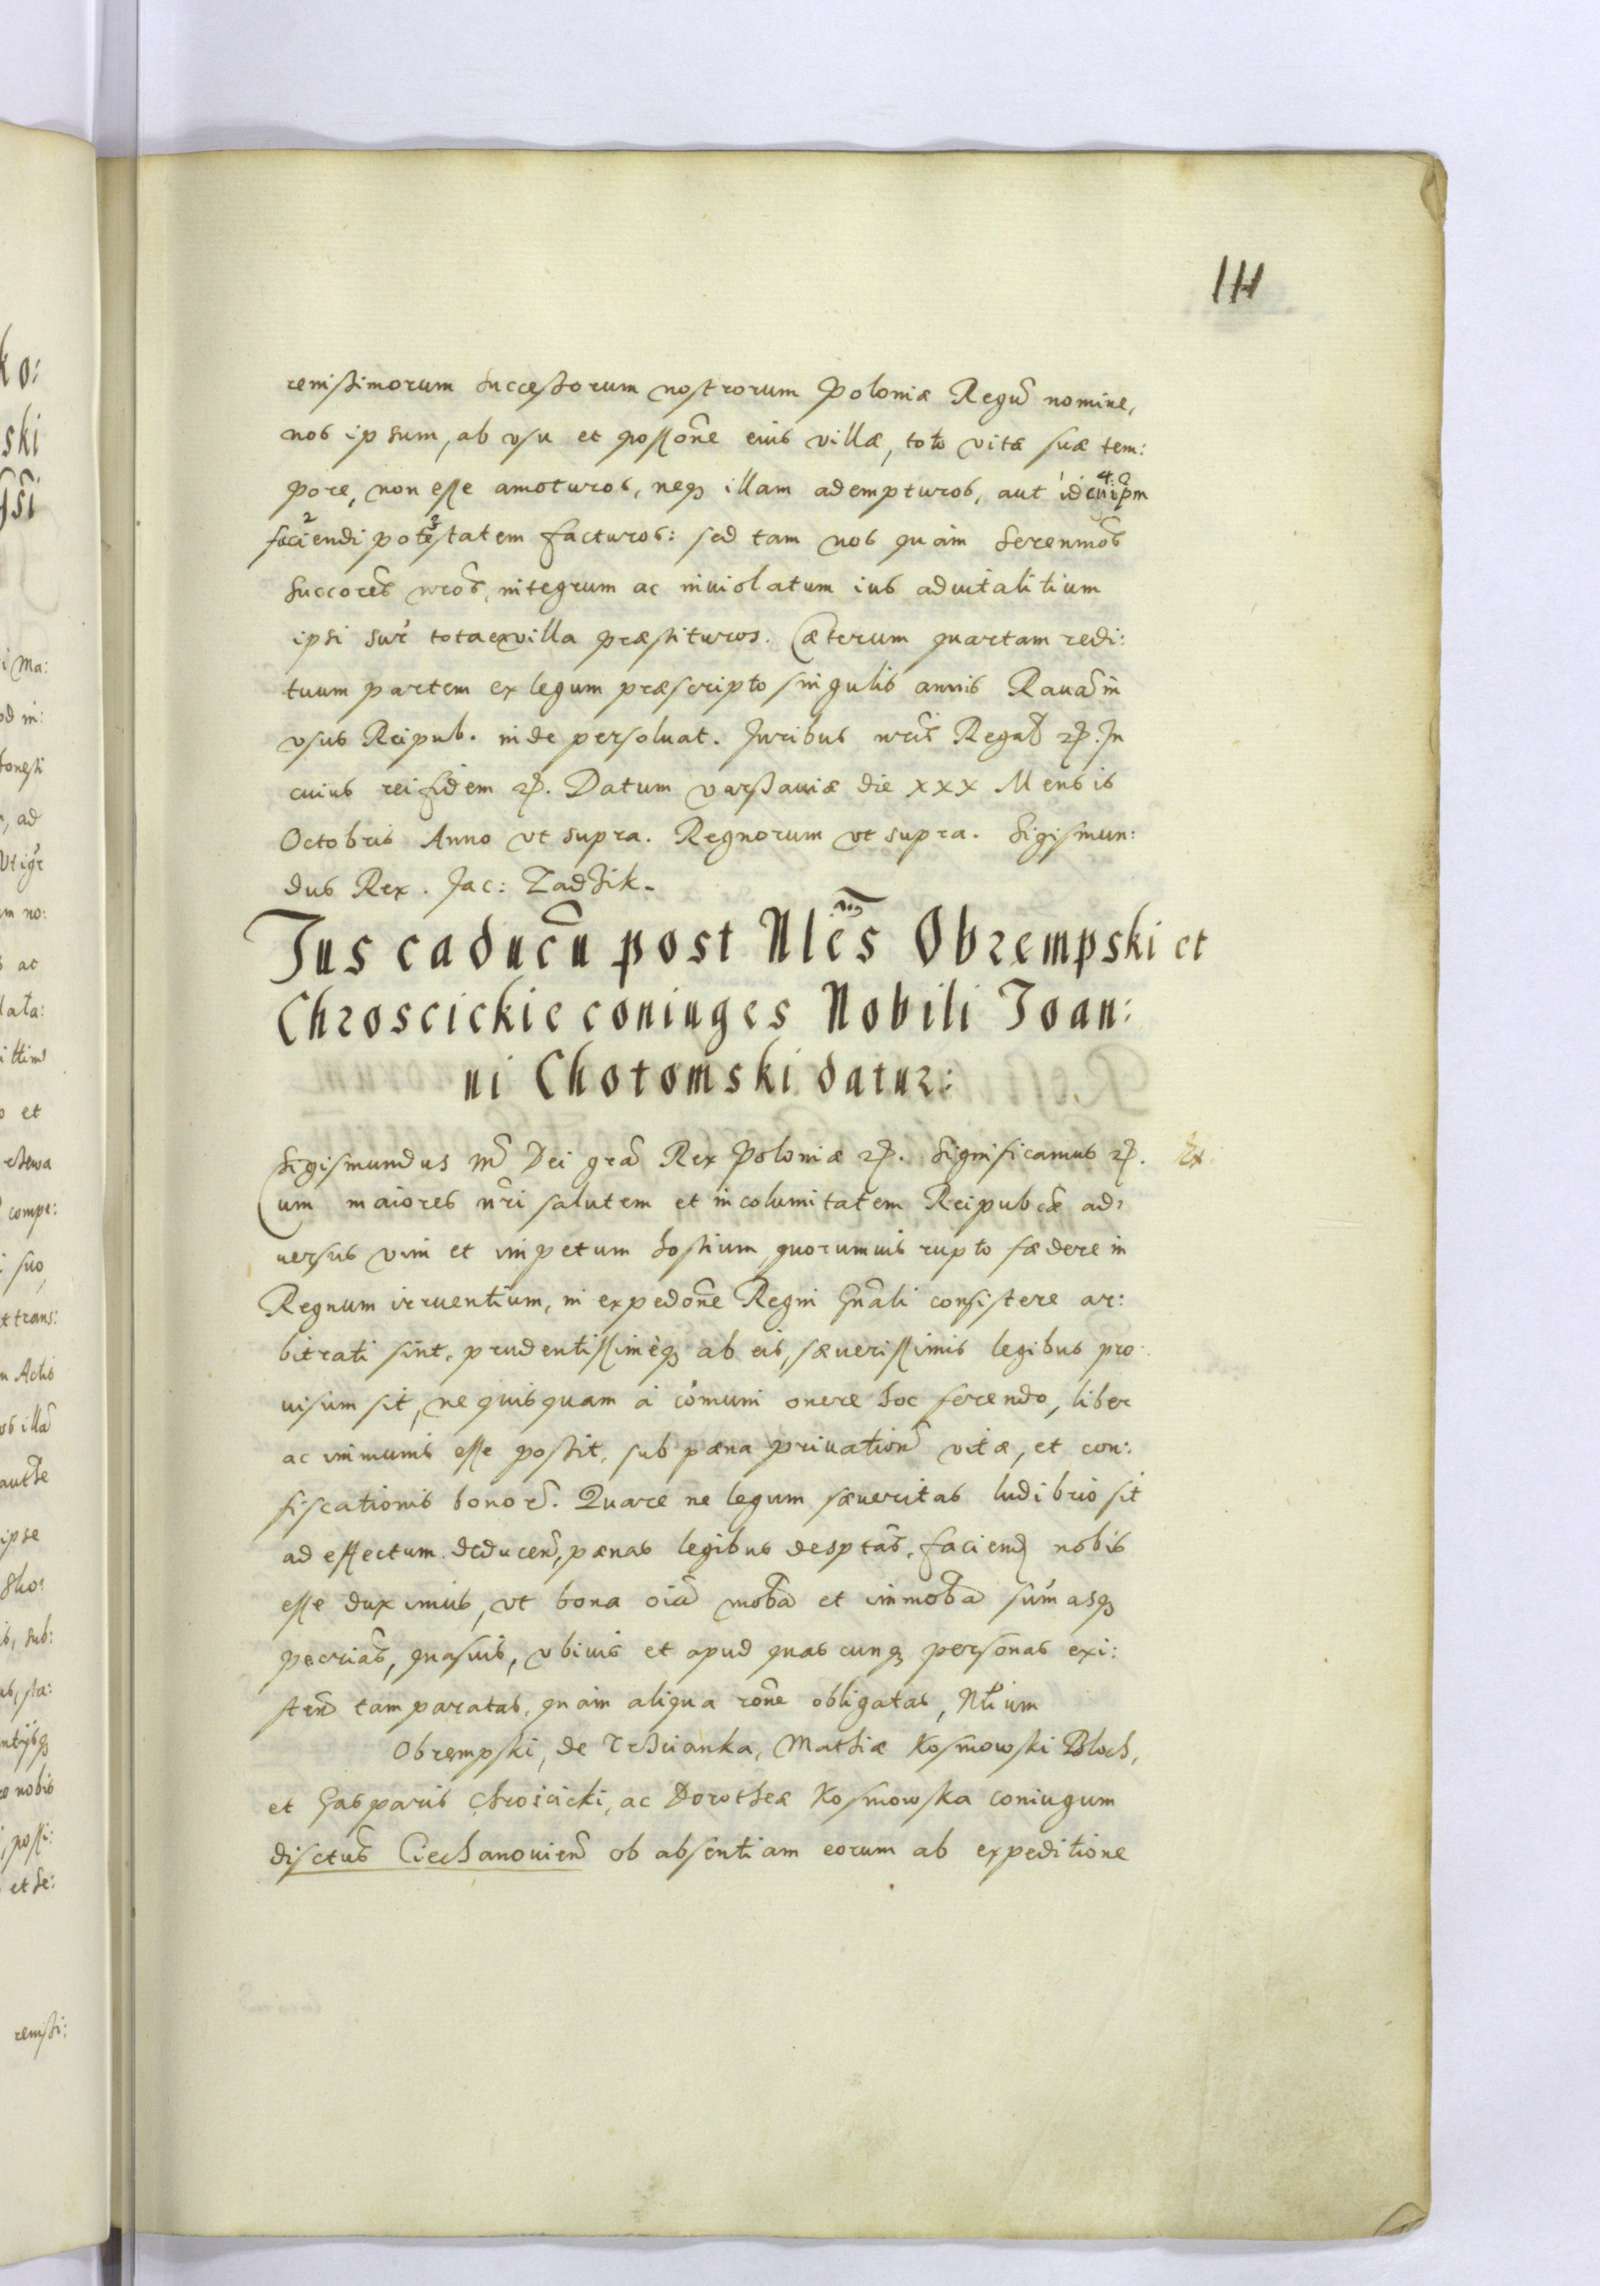 111
renissimorum successorum nostrorum Poloniæ Regũ nomine,
nos ipsum, ab usu et possõne eius villæ, toto vitæ suæ tem:
pore, non esse amoturos, neq; illam adempturos, aut id cuipm
faciendi potestatem facturos: sed tam nos quàm Serenmos
Succores nros, integrum ac inviolatum ius advitalitium
ipsi sup tota ex villa præstituros. Cæterum quartam redi:
tuum partem ex legum præscripto singulis annis Ravã in
usus Reipub. inde persoluat. Juribus nris Regal etc. In
cuius rei fidem etc. Datum Varssaviæ die XXX Mensis
Octobris Anno ut supra. Regnorum ut supra. Sigismun:
dus Rex. Jac: Zadzik.
Jus caducũ post Nles Obrempski et
Chroscickie coniuges Nobili Joan:
ni Chotomski datur:
Sigismundus III Dei grã Rex Poloniæ etc. Significamus etc.
Cum maiores nri salutem et incolumitatem Reipubcæ ad:
versus vim et impetum hostium quorumvis rupto fædere in
Regnum irruentium, in expedõne Regni Gnali consistere ar:
bitrati sint, prudentissimèq; ab eis, sæverissimis legibus pro:
visum sit, ne quisquam à cõmuni onere hoc ferendo, liber
ac immunis esse possit, sub pæna privation vitæ, et con:
fiscationis bonor. Quare ne legum sæveritas ludibrio sit
ad effectum deducen, pænas legibus desptas, faciend nobis
esse duximus, ut bona oia mobã et immobã sũmasq;
pecrias, quasvis, ubivis et apud quascunq; personas exi:
sten tam paratas, quàm aliqua rõne obligatas, Nlium
Obrempski, de Trzcianka, Mathiæ Kosmowski Bloch,
et Gasparis Chroscicki, ac Dorotheæ Kosmowska coniugum
disctus Ciechanovien ob absentiam eorum ab expeditione